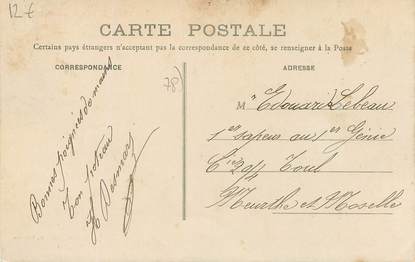 12 €
CARTE POSTALE
Certains pays étrangers n'acceptant pas la correspondance de ce côté, se renseigner à la Poste
CORRESPONDANCE
ADRESSE
78)
Bonnes poignées de main
Ton poteau
Desmars
M r Edouard Lebeau
1er sapeur au 1er Génie
Toul
Meurthe et Moselle